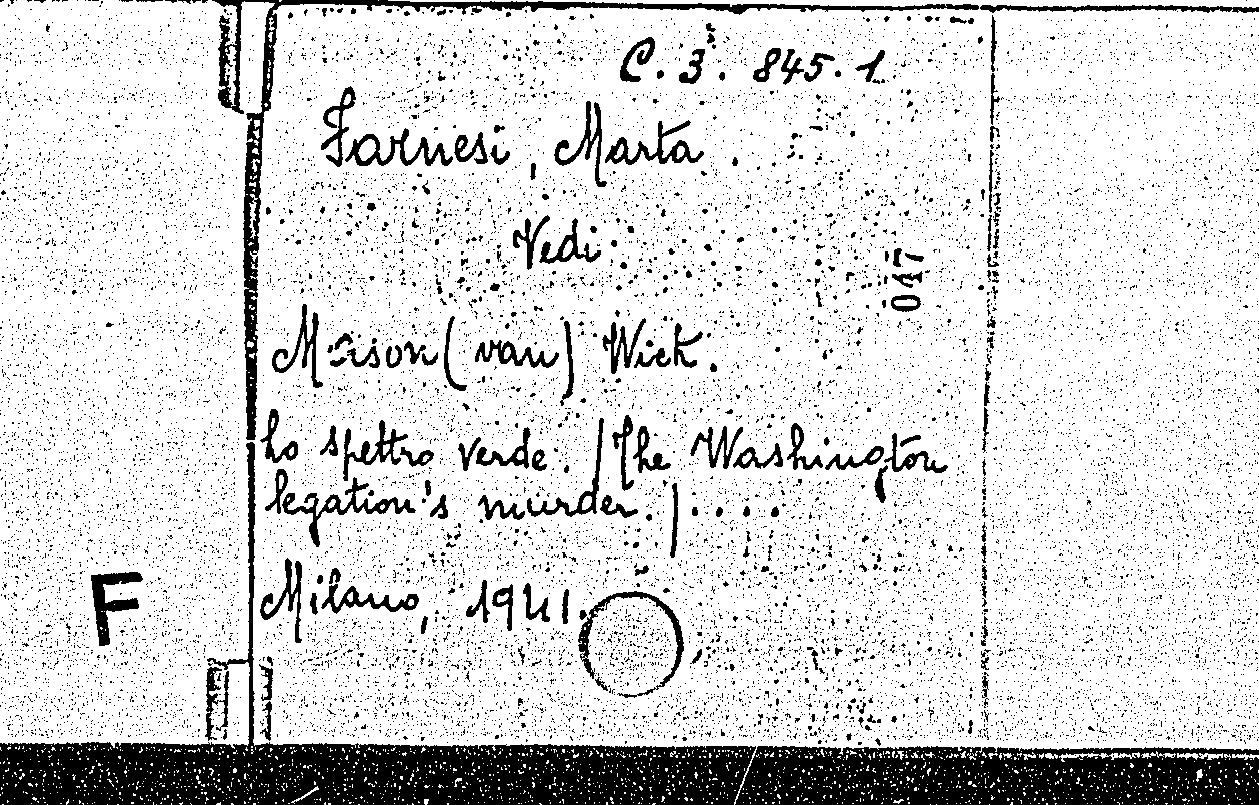 C. 3. 845. 1
Farnesi, Marta.
Vedi:
Mason (van) Wick.
Lo spettro verde. /The Washington
legation's murder./....
Milano, 1941.
047
F